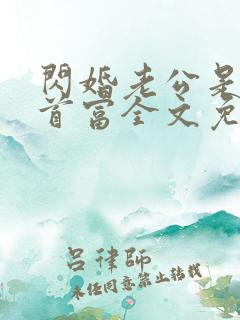 閃婚老公是
首富全文免
吕律師
未任同意禁止转载